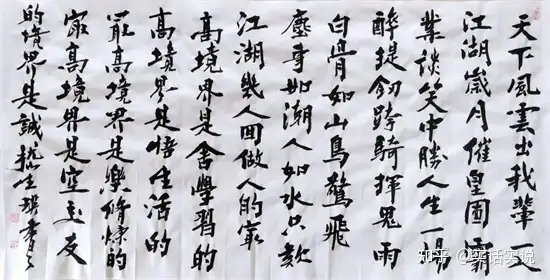 天下風雲出我輩一入
江湖歲月催皇圖霸
業談笑中勝人生一場
醉提劍跨騎揮鬼雨
白骨如山鳥驚飛
塵事如潮人如水只歎
江湖幾人回做人的最
高境界是舍學習的
高境界是悟生活的
最高境界是樂修煉的
最高境界是空交友
的境界是誠
知乎 @实话实说